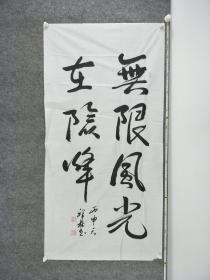 無限風光
在險峰
丙申六